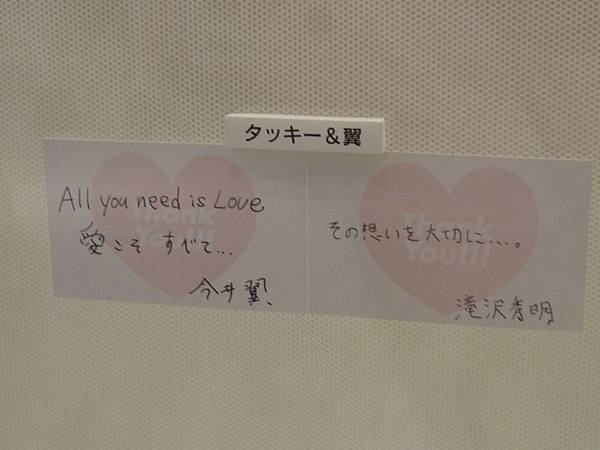 タッキー＆翼
All you need is Love
愛こそ すべて...
今井翼
Thank
You!!!
その想いを大切に...。
滝沢秀明
Thank
You!!!